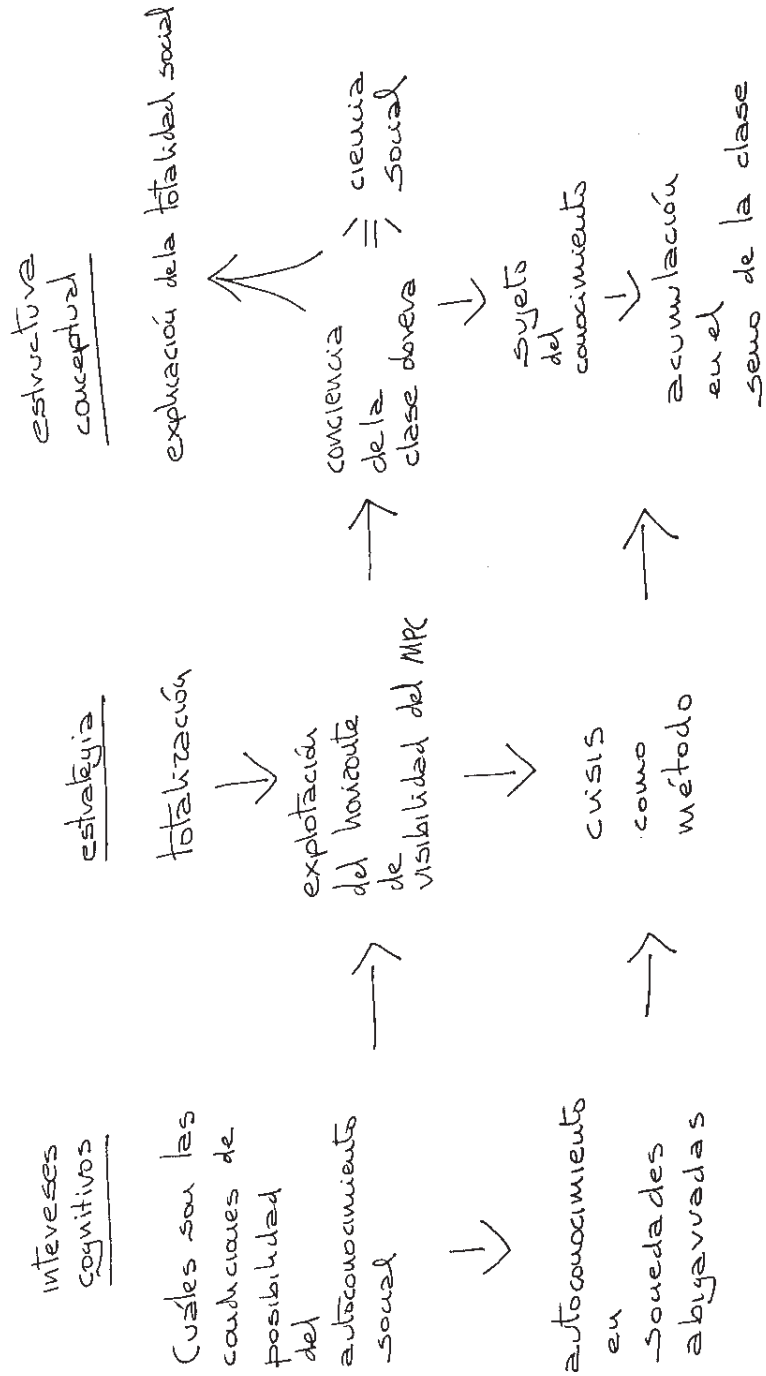 intereses
cognitivos
Cuáles son las
condiciones de
posibilidad
del
autoconocimiento
social
autoconocimiento
en
sociedades
abigarradas
estrategia
totalización
explotación
del horizonte
de
visibilidad del MPC
crisis
como
método
estructura
conceptual
explicación de la totalidad social
conciencia
de la
clase obrera
=
ciencia
social
sujeto
del
conocimiento
acumulación
en el
seno de la clase